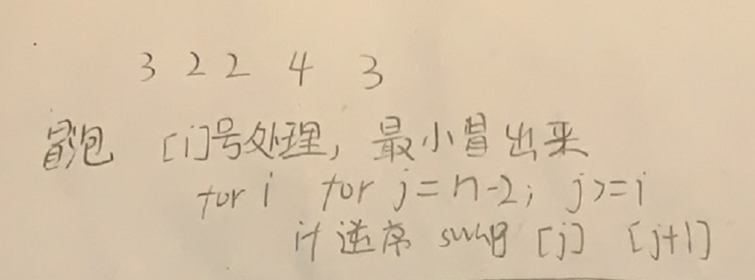 3 2 2 4 3
冒泡 [i]号处理, 最小冒出来
for i for j=n-2; j>=i
if 逆序 swap [j] [j+1]